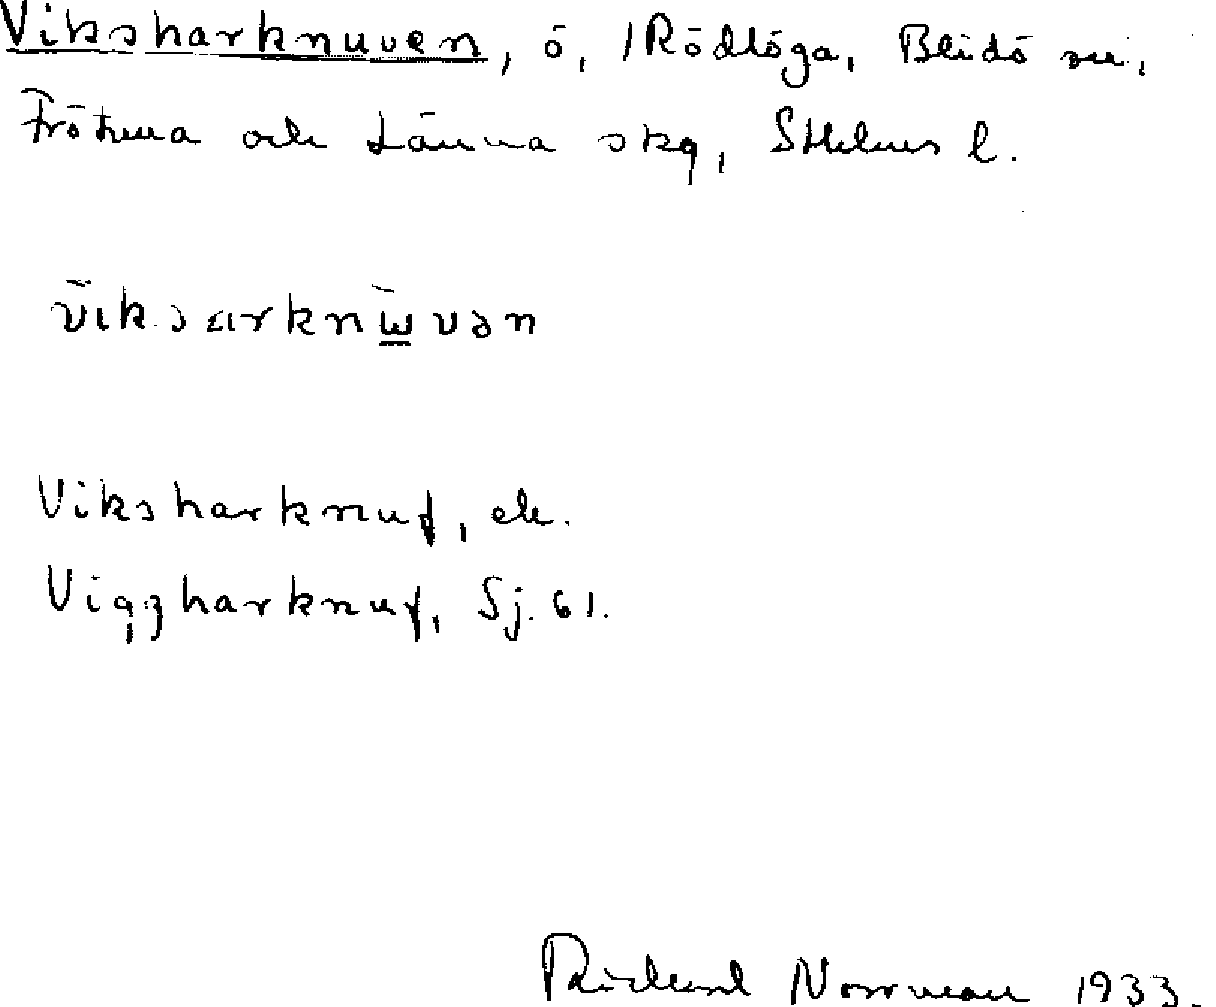 Viksharknuven, ö, /Rödlöga, Blidö sn,
Frötuna och Länna skg, Sthlms l.
viksarknɯvən
Viksharknuf, ek.
Viggzharknuf, Sj. 61.
Rickard Norrman 1933.